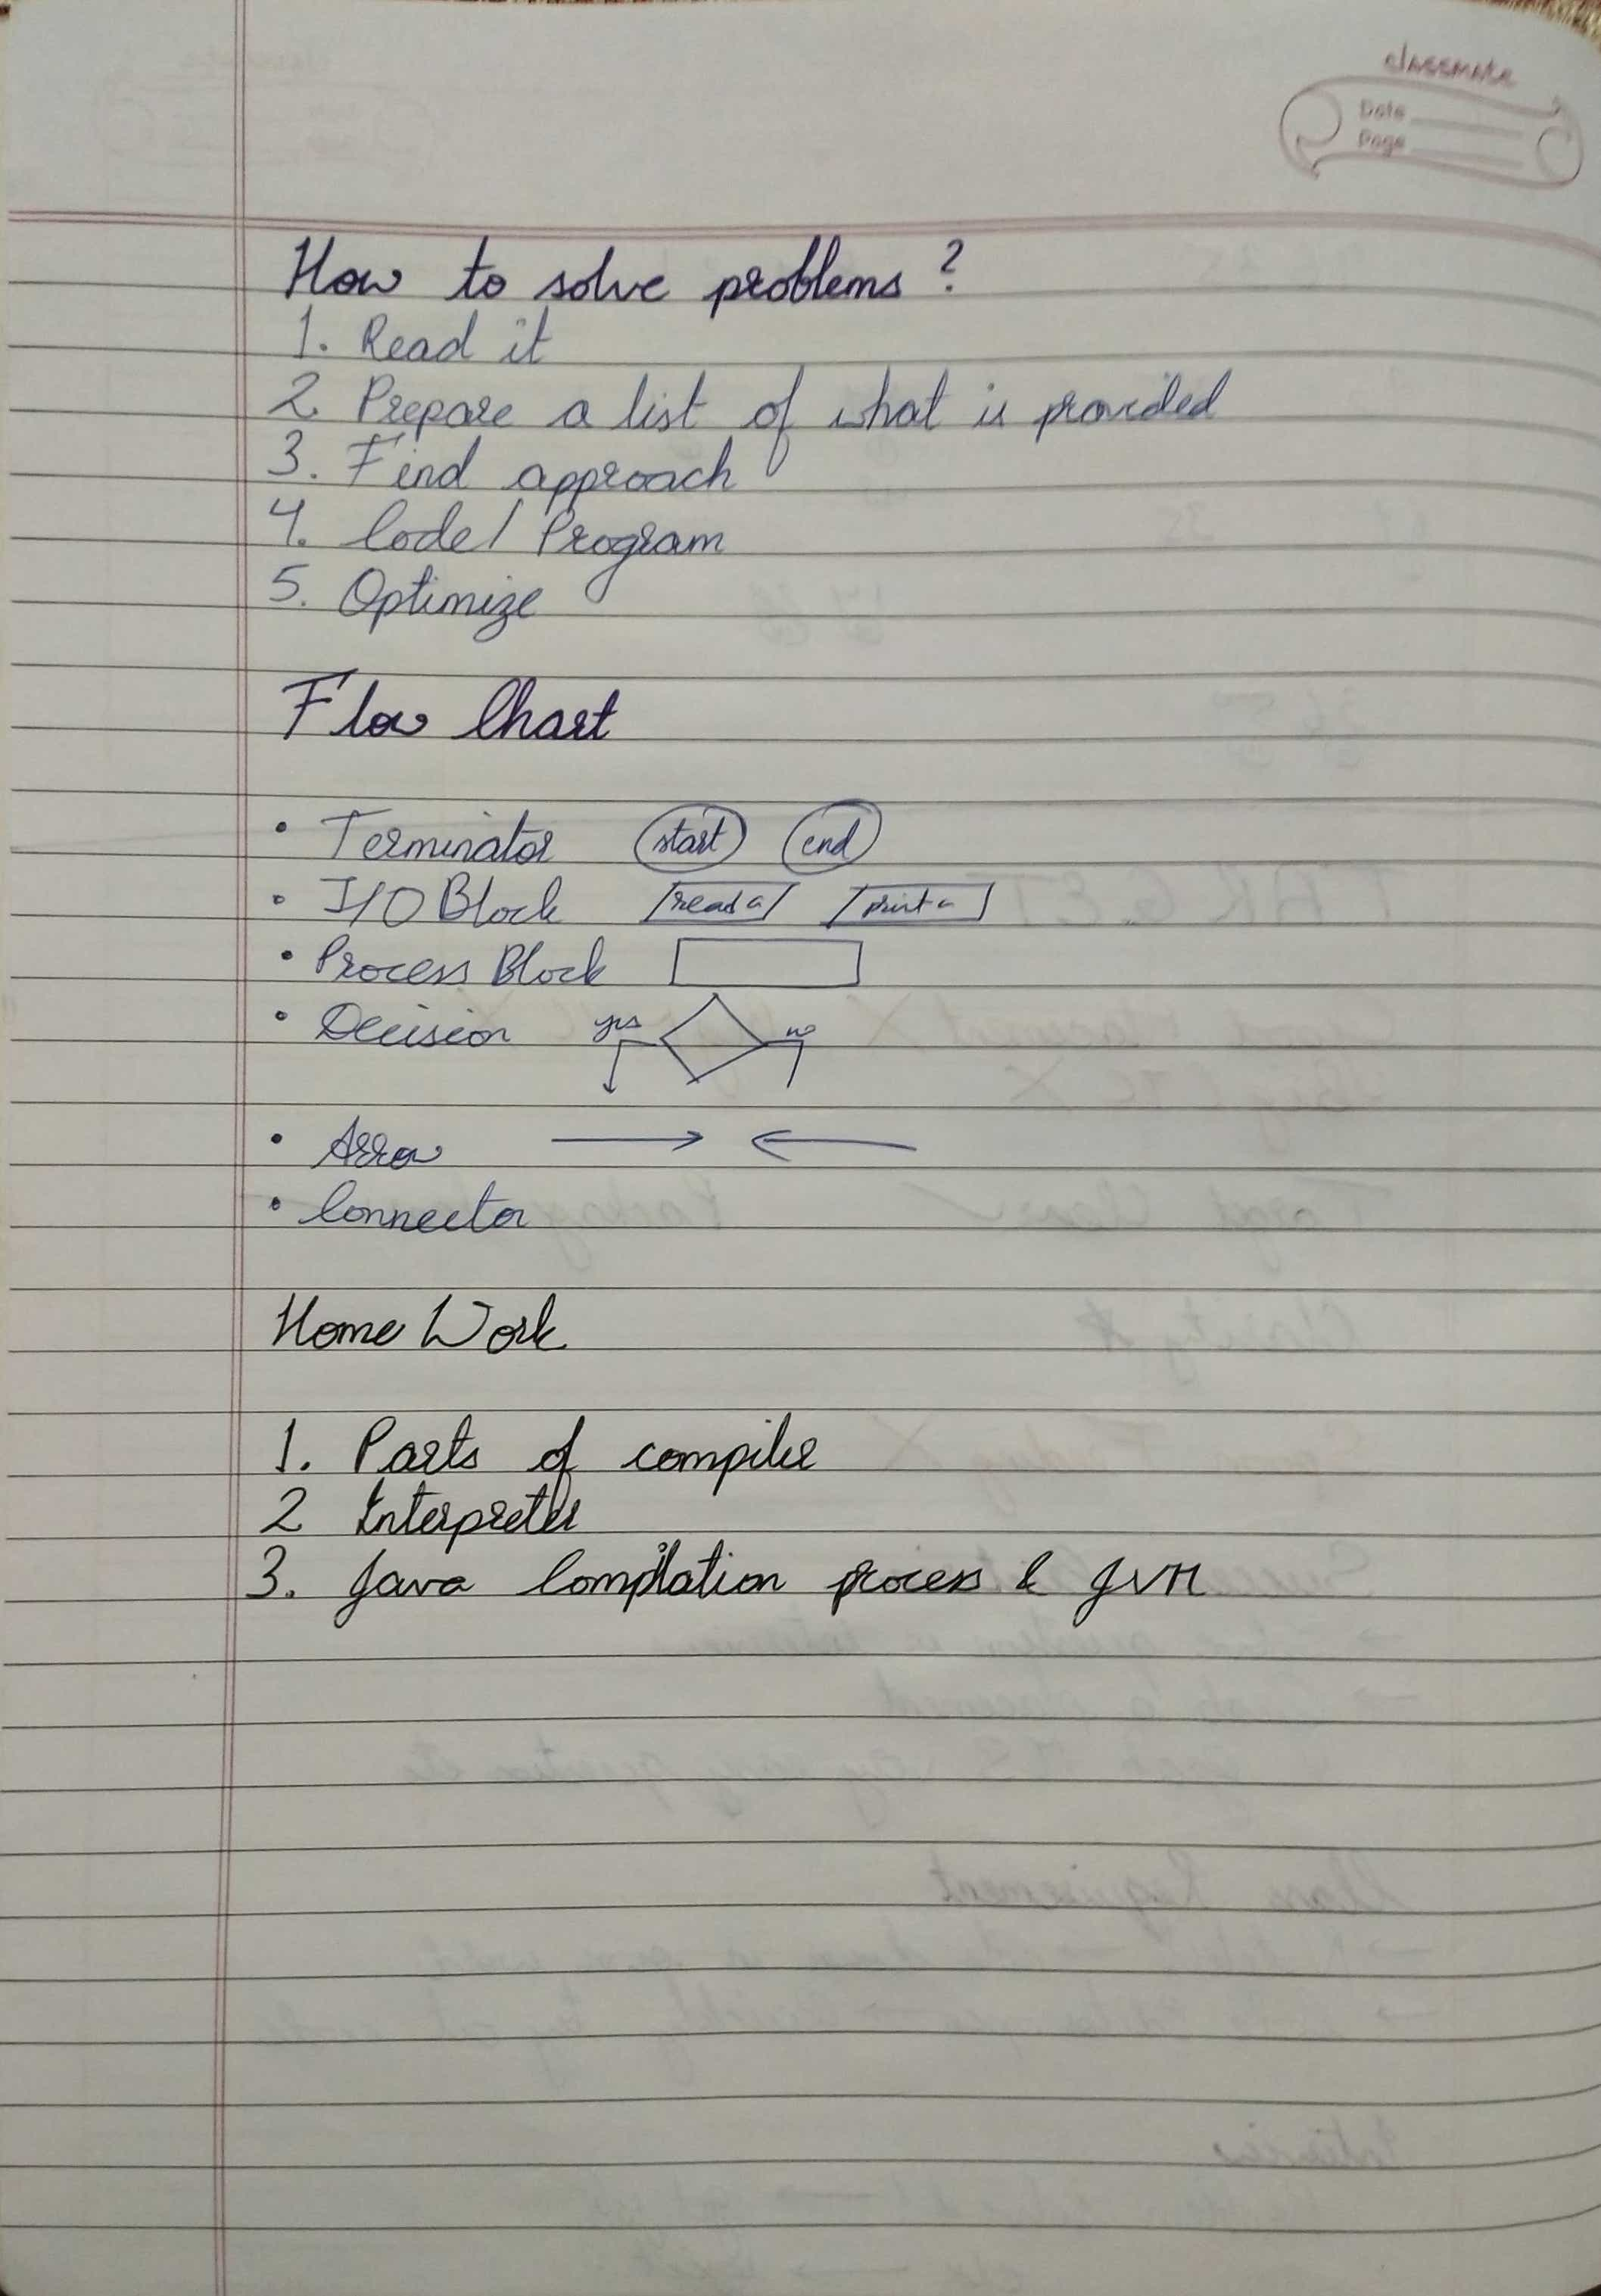 classmate
Date
Page
How to solve problems ?
1. Read it
2. Prepare a list of what is provided
3. Find approach
4. Code / Program
5. Optimize
Flow Chart
• Terminator start end
• I/O Block read a print a
• Process Block
• Decision yes no
• Arrow
• Connector
Home Work
1. Parts of compiler
2 Interpreter
3. Java Compilation process & JVM